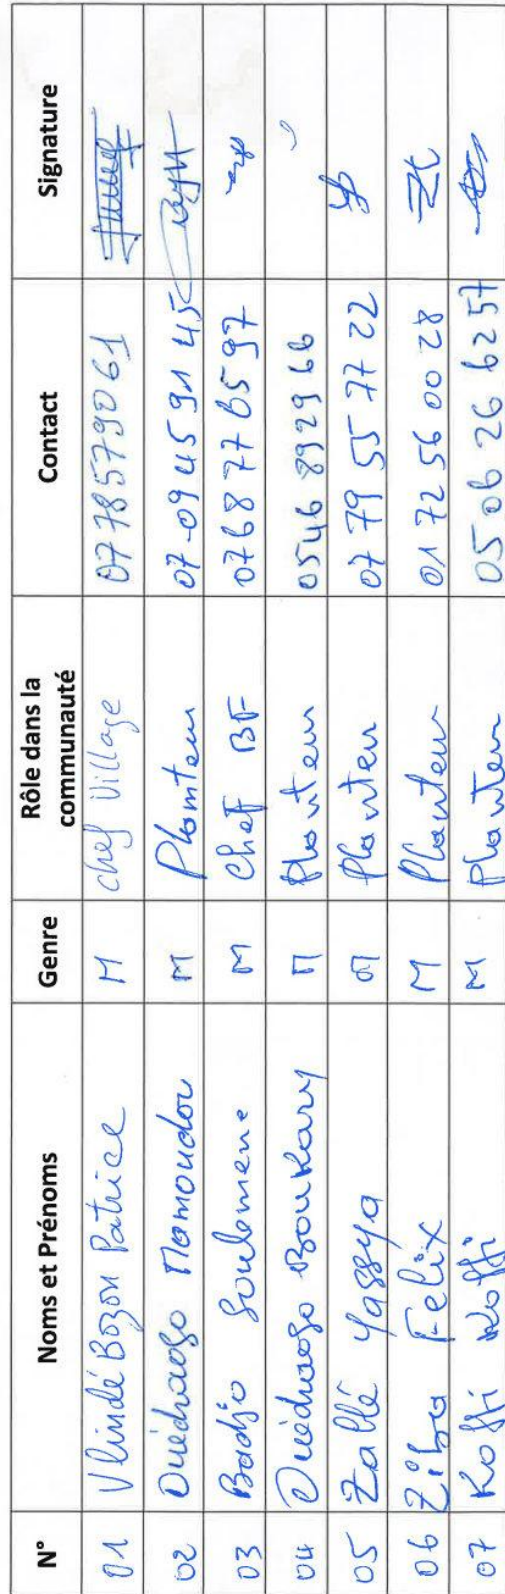 N° Noms et Prénoms Genre Rôle dans la communauté Contact Signature
01 Vlindé Bozon Patrice M chef Village 0778579061
02 Ouédraogo Mamoudou M Planteur 07-09 45 91 45
03 Badjo Soulemene M Chef BF 0768776597
04 Ouédraogo Boukary M Planteur 0546892966
05 Zallé Yassya M Planteur 07 79 55 77 22
06 Ziba Felix M Planteur 01 72 56 00 28
07 Koffi Koffi M Planteur 05 06 26 62 57